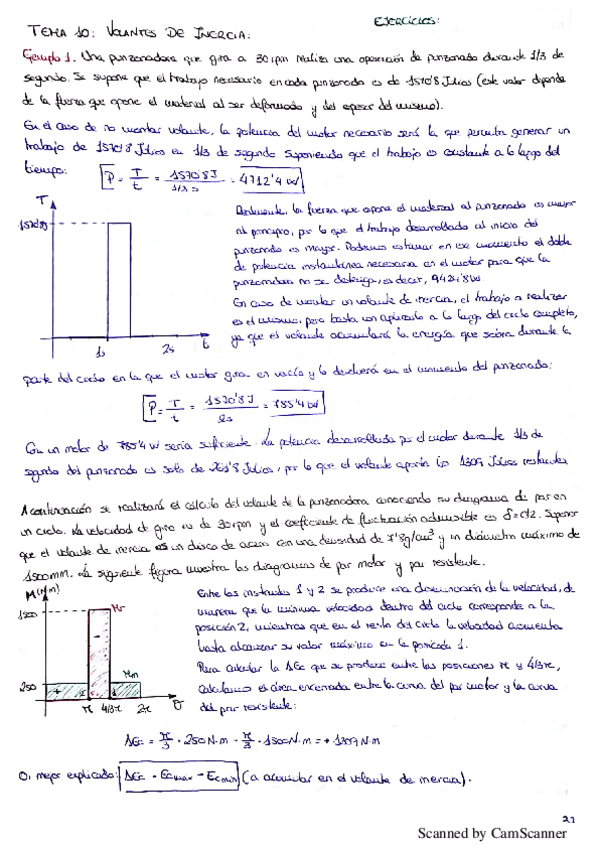 EJERCICIOS:
TEMA 10: VOLANTES DE INERCIA:
Ejemplo 1. Una punzonadora que gira a 30 rpm realiza una operación de punzonado durante 1/3 de
segundo. Se supone que el trabajo necesario en cada punzonada es de 1570'8 Julios (este valor depende
de la fuerza que opone el material al ser deformado y del espesor del mismo).
En el caso de no montar volante, la potencia del motor necesario será la que permita generar un
trabajo de 1570'8 Julios en 1/3 de segundo suponiendo que el trabajo es constante a lo largo del
tiempo: P = T/t = 1570'8J / 1/3 s = 4712'4 W
T
la fuerza que opone el material al punzonado es mayor
al principio, por lo que el trabajo desarrollado al inicio del
punzonado es mayor. Podemos estimar en ese momento el doble
de potencia instantánea necesaria en el motor para que la
punzonadora no se detenga, es decir, 9424'8W
En caso de montar un volante de inercia, el trabajo a realizar
es el mismo, pero basta con aplicarlo a lo largo del ciclo completo,
ya que el volante acumulará la energía que sobra durante la
1s 2s t
parte del ciclo en la que el motor gira en vacío y lo devolverá en el momento del punzonado:
P = T/t = 1570'8J / 2s = 785'4 W
Con un motor de 785'4 W sería suficiente. La potencia desarrollada por el motor durante 1/3 de
segundo del punzonado es solo de 261'8 Julios, por lo que el volante aporta los 1309 Julios restantes
A continuación se realizará el cálculo del volante de la punzonadora conociendo su diagrama de par en
un ciclo. La velocidad de giro es de 30 rpm y el coeficiente de fluctuación admisible es δ=0'2. Suponer
que el volante de inercia es un disco de acero con una densidad de 7'8g/cm³ y un diámetro máximo de
1500mm. La siguiente figura muestra los diagramas de par motor y par resistente.
M(N·m)
1500
Mr
Mm
250
π 4/3π 2π
Entre los instantes 1 y 2 se produce una disminución de la velocidad, de
manera que la mínima velocidad dentro del ciclo corresponde a la
posición 2, mientras que en el resto del ciclo la velocidad aumenta
hasta alcanzar su valor máximo en la posición 1.
Para calcular la ΔEc que se produce entre las posiciones π y 4/3π,
calculamos el área encerrada entre la curva del par motor y la curva
del par resistente:
ΔEc = π/3 · 250 N·m - π/3 · 1500N·m = + 1309 N·m
O, mejor explicado: ΔEc = Ecmax - Ecmin (a acumular en el volante de inercia).
21
Scanned by CamScanner